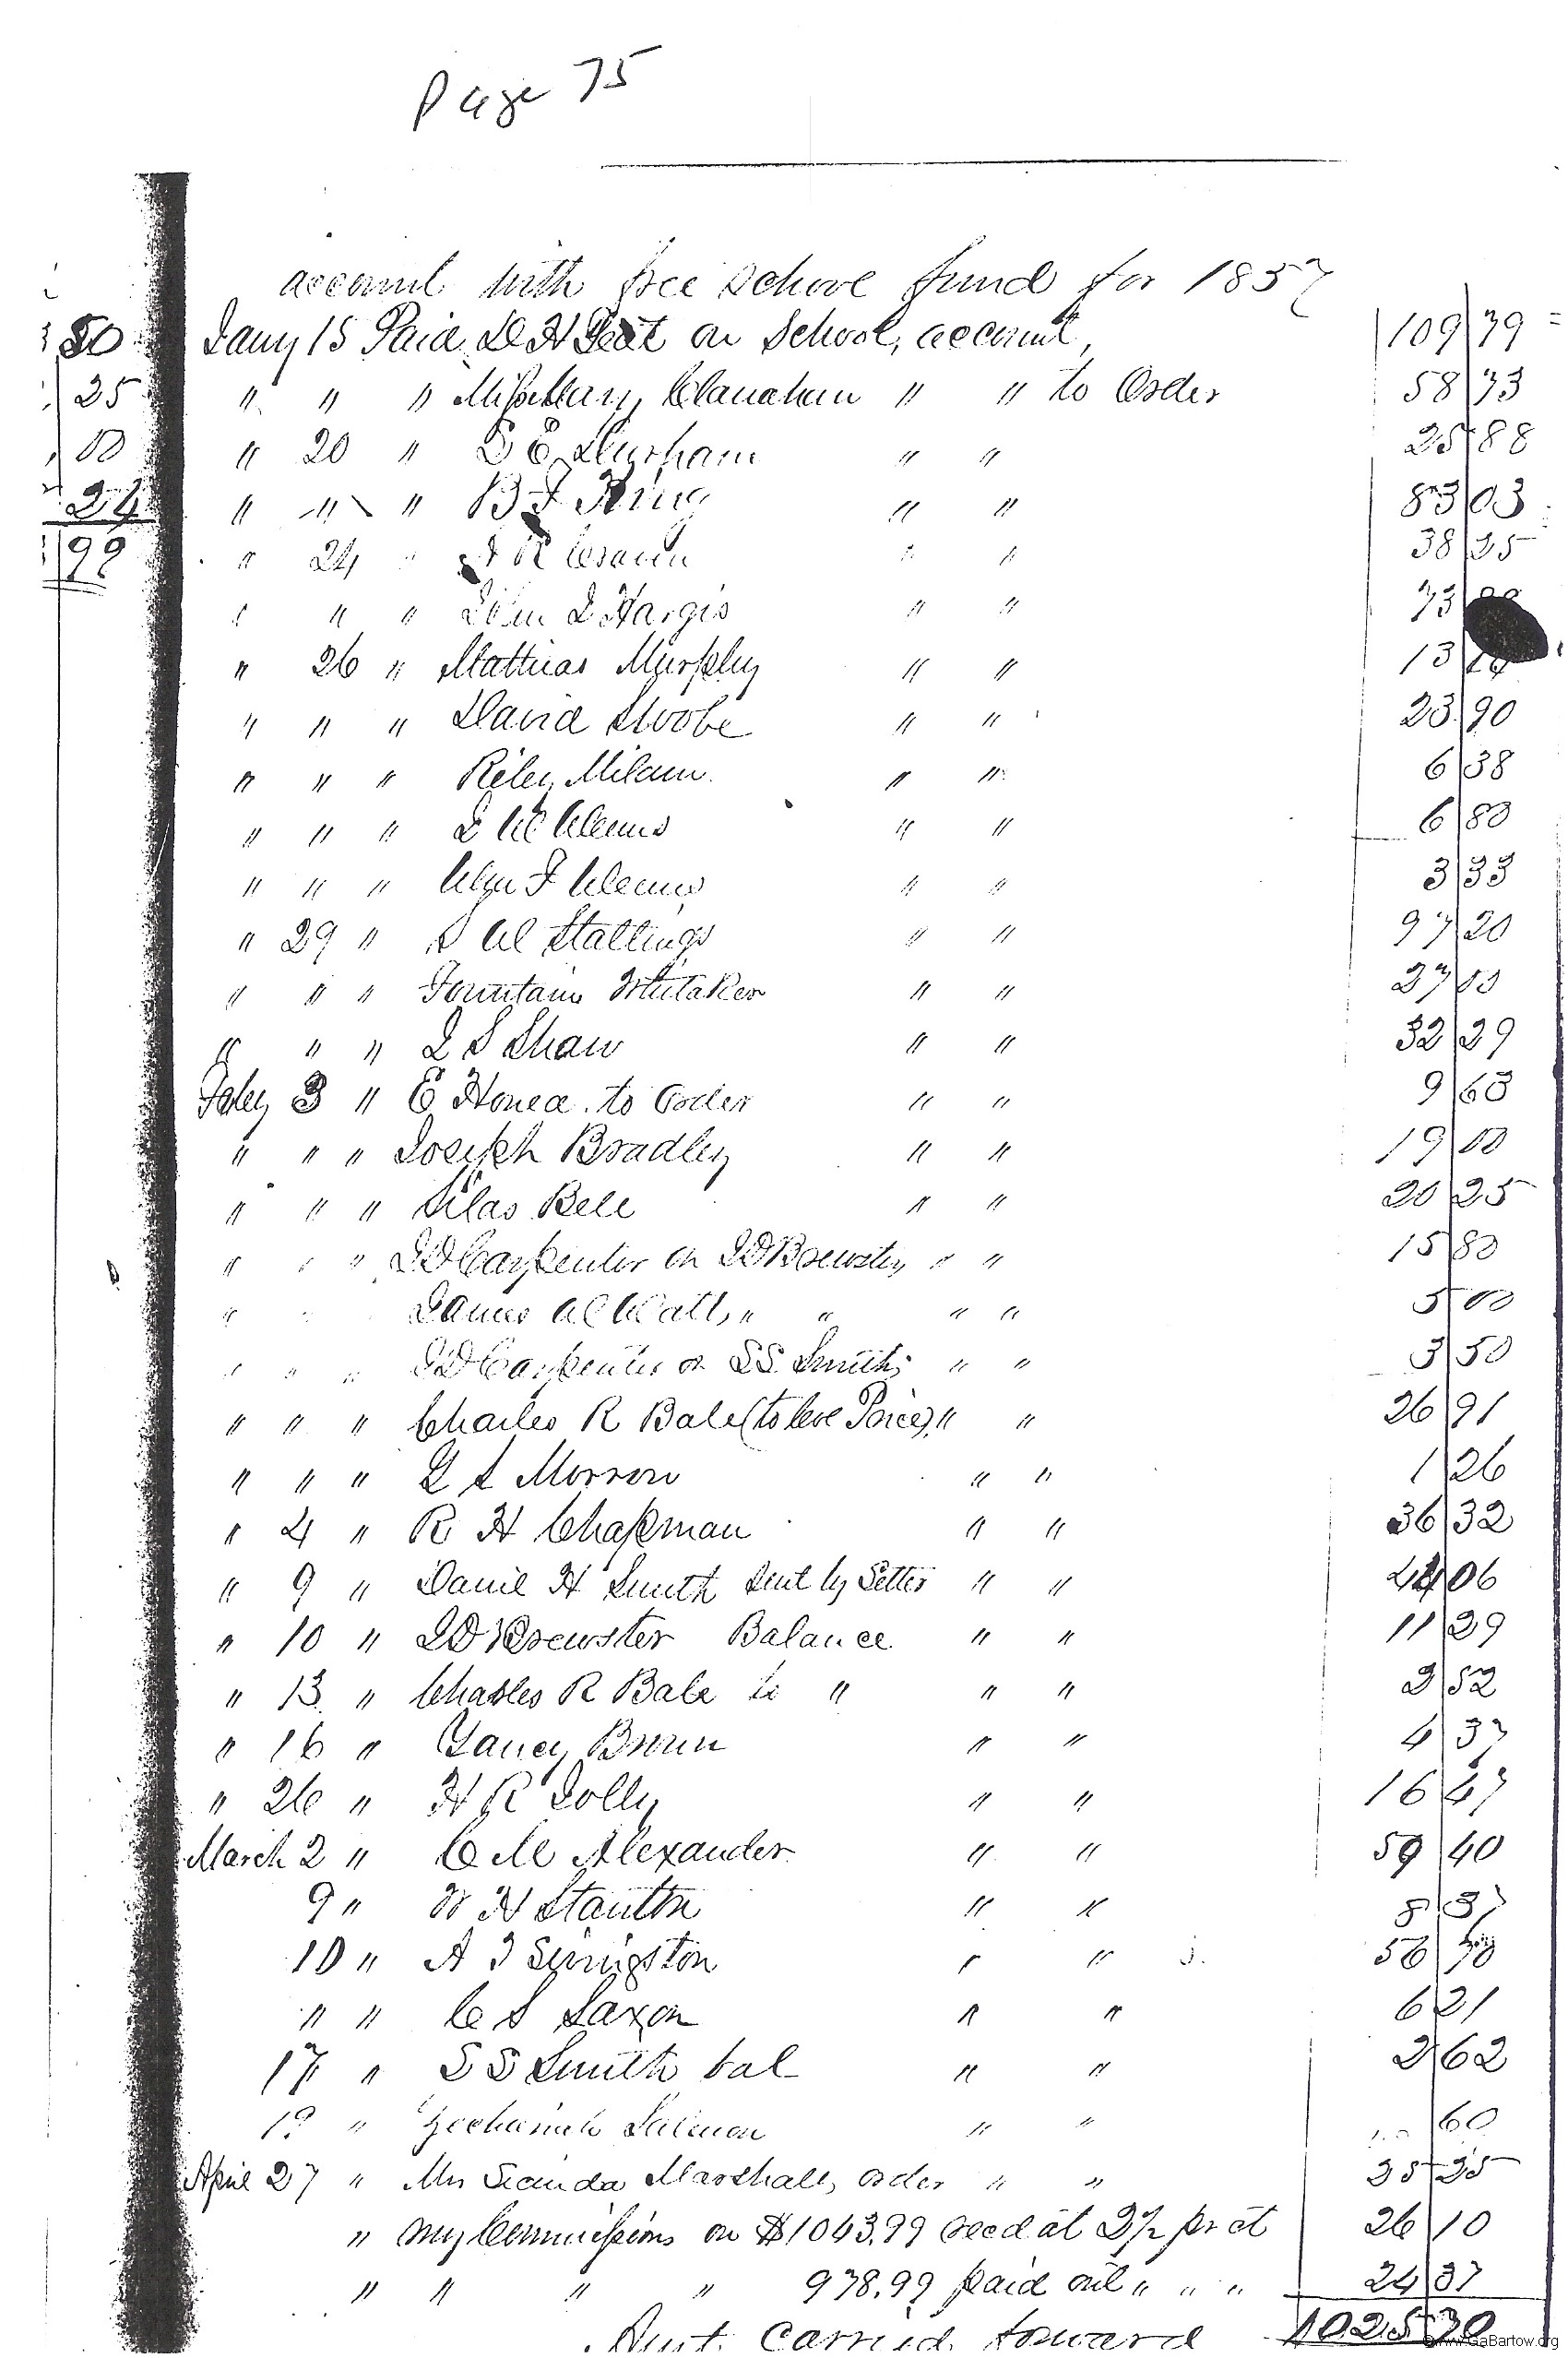 Page 75
account with free school fund for 1857
50 Jany 15 Paid D H Peat on School, account, 109 79
25 " " " Miss Mary Clanahan " " to Order 58 73
00 " 20 " Durham " " 25 88
24 " " " B F King " " 83 03
99 " 24 " R " " 38 35
" " " John L Hargis " " 73
" 26 " Mathias Murphy " " 13
" " " David " " 23 90
" " " Riley Milam " " 6 38
" " " " " 6 80
" " " F " " 3 33
" 29 " Stallings " " 97 20
" " " Fountain Whitaker " " 27 00
" " " L S Shaw " " 32 29
Feby 3 " E Honea. to Order " " 9 63
" " " Joseph Bradley " " 19 00
" " " Silas Bell " " 20 25
" " " J D Carpenter on J D Brewster, " " 15 80
" " James " " " " 5 00
" " " J D Carpenter on S S Smith; " " 3 50
" " " Charles R Bale (to Price) " " 26 91
" " " Morrow " " 1 26
" 4 " R H Chapman " " 36 32
" 9 " Daniel H Smith sent by Letter " " 06
" 10 " J D Brewster Balance " " 11 29
" 13 " Charles R Bale " " " 2 52
" 16 " Yancy Brown " " 4 37
" 26 " H R Jolly " " 16 47
March 2 " C M Alexander " " 59 40
9 " W H Stanton " " 8 37
10 " A J Livingston " " 56
" " C S Saxon " " 6 21
17 " S S Smith bal " " 2 62
" Zechariah Salmon " " 60
April 27 " Mrs Marshall, order " " 35 35
" my Commissions on $1043.99 recd at 2½ pr ct 26 10
" " " " 978.99 paid out " " " 24 37
Amt. Carried forward 1025 70
© www.GaBartow.org